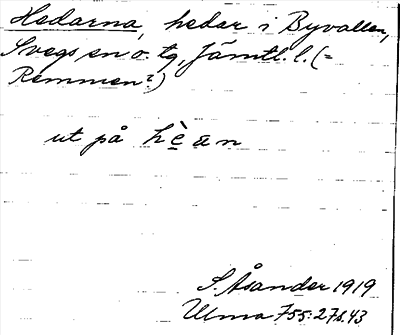 Hedarna, hedar i Byvallen,
Svegs sn o. tg, Jämtl. l. (=
Remmen?)
ut på hèan
S. Åsander 1919
Ulma 755:27 s. 43